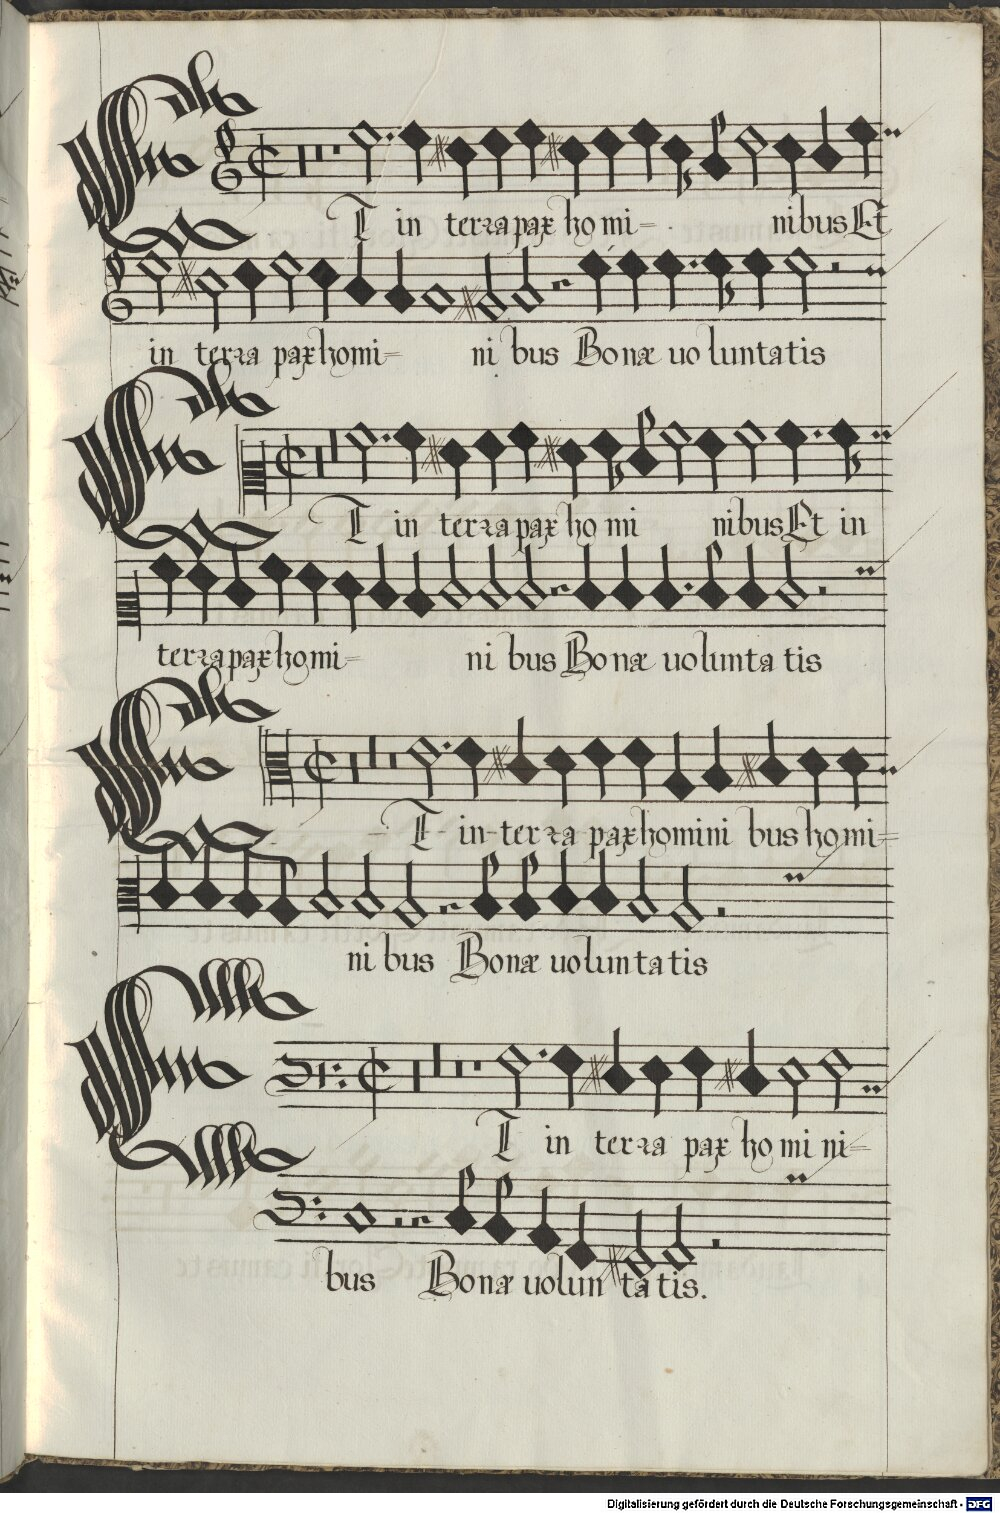 Et in terra pax homi- nibus Et
in terra pax homi= ni bus Bonæ uoluntatis
Et in terra pax ho mi nibus Et in
terra pax homi= ni bus Bonæ uolunta tis
Et in terra pax homini bus homi=
ni bus Bonæ uoluntatis
Et in terra pax ho mi ni=
bus Bonæ uolun ta tis.
Digitalisierung gefördert durch die Deutsche Forschungsgemeinschaft - DFG